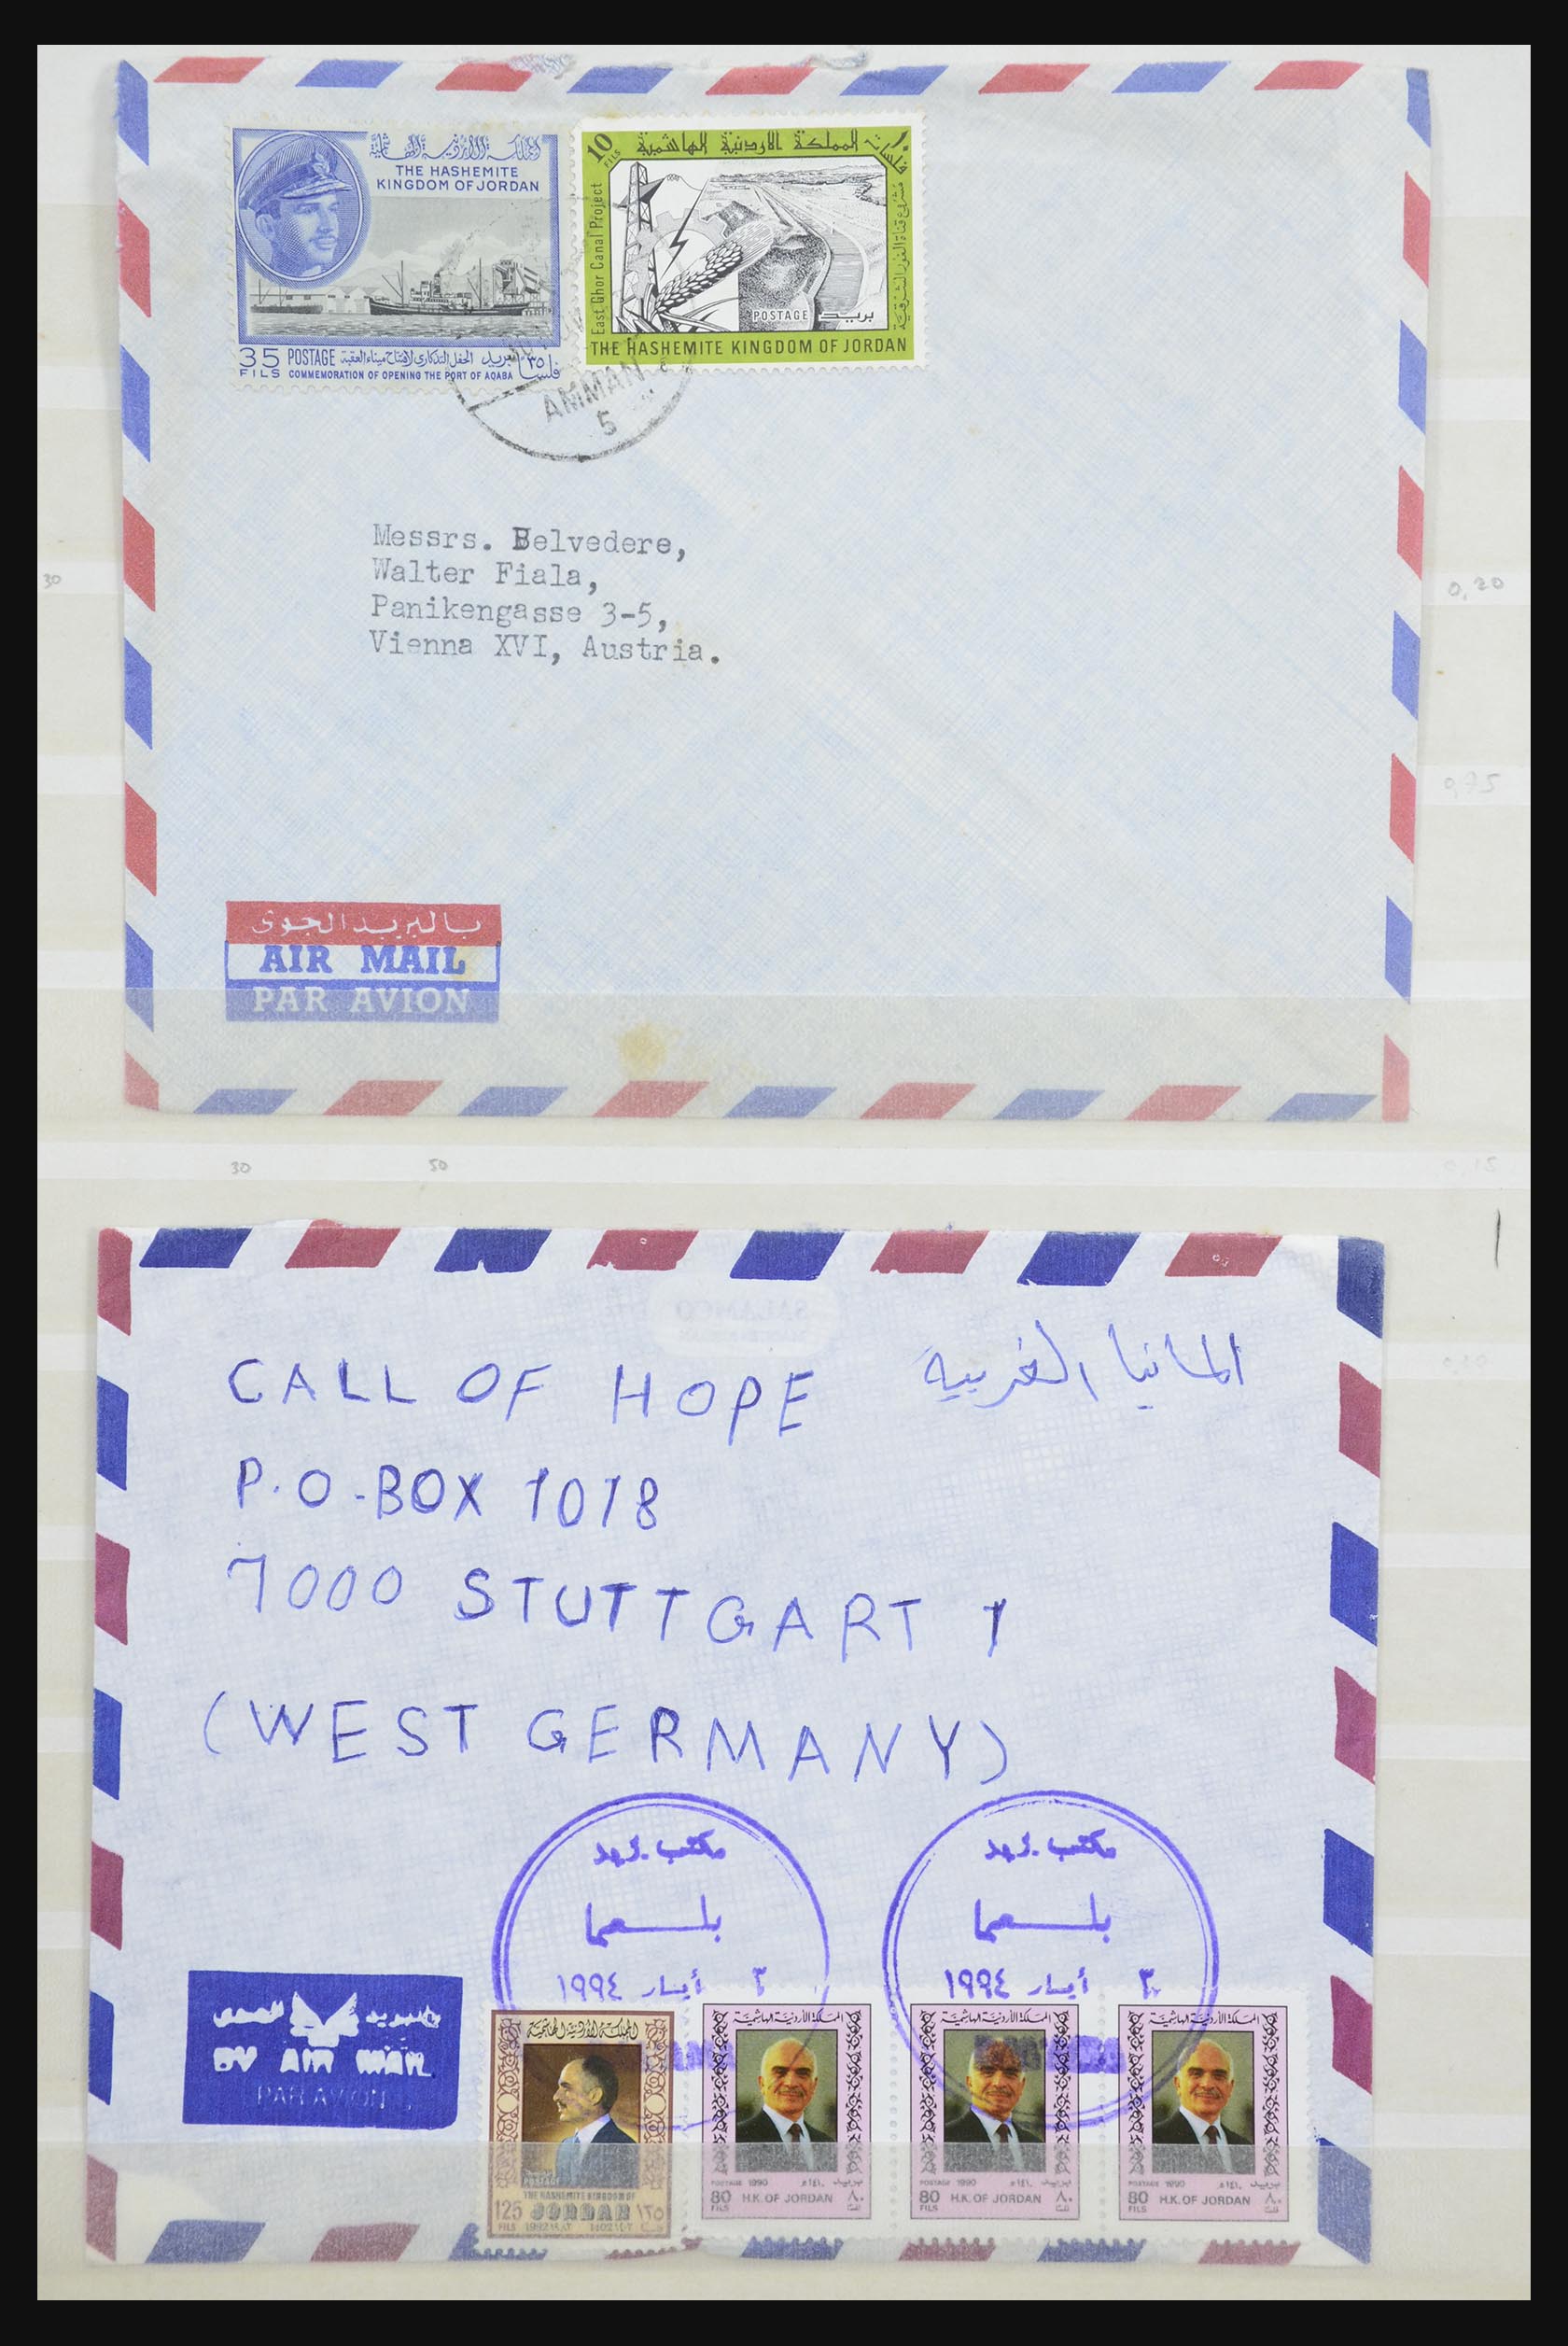 المملكة الأردنية الهاشمية
THE HASHEMITE
KINGDOM OF JORDAN
35 POSTAGE الحفل التذكاري لافتتاح ميناء العقبة بريد ٣٥
FILS COMMEMORATION OF OPENING THE PORT OF AQABA فلسا
10 FILS المملكة الاردنية الهاشمية ١٠ فلسات
East Ghor Canal Project
مشروع قناة الغور الشرقية
POSTAGE بريد
THE HASHEMITE KINGDOM OF JORDAN
AMMAN
5
Messrs. Belvedere,
Walter Fiala,
Panikengasse 3-5,
Vienna XVI, Austria.
30
0,20
بالبريد الجوى
AIR MAIL
PAR AVION
30 50
SALAMCO
CALL OF HOPE المانيا الغربية
P.O.BOX 1018
7000 STUTTGART 1
(WEST GERMANY)
مكتب بريد
بلعما
٣ أيار ١٩٩٤
مكتب بريد
بلعما
٣ أيار ١٩٩٤
BY AIR MAIL
PAR AVION
المملكة الأردنية الهاشمية
POSTAGE
THE HASHEMITE KINGDOM OF
125 JORDAN ١٢٥
FILS
المملكة الأردنية الهاشمية
POSTAGE 1990 ١٤١٠ بريد
80 H.K. OF JORDAN ٨٠
FILS فلسا
المملكة الأردنية الهاشمية
POSTAGE 1990 ١٤١٠ بريد
80 H.K. OF JORDAN ٨٠
FILS فلسا
المملكة الأردنية الهاشمية
POSTAGE 1990 ١٤١٠ بريد
80 H.K. OF JORDAN ٨٠
FILS فلسا